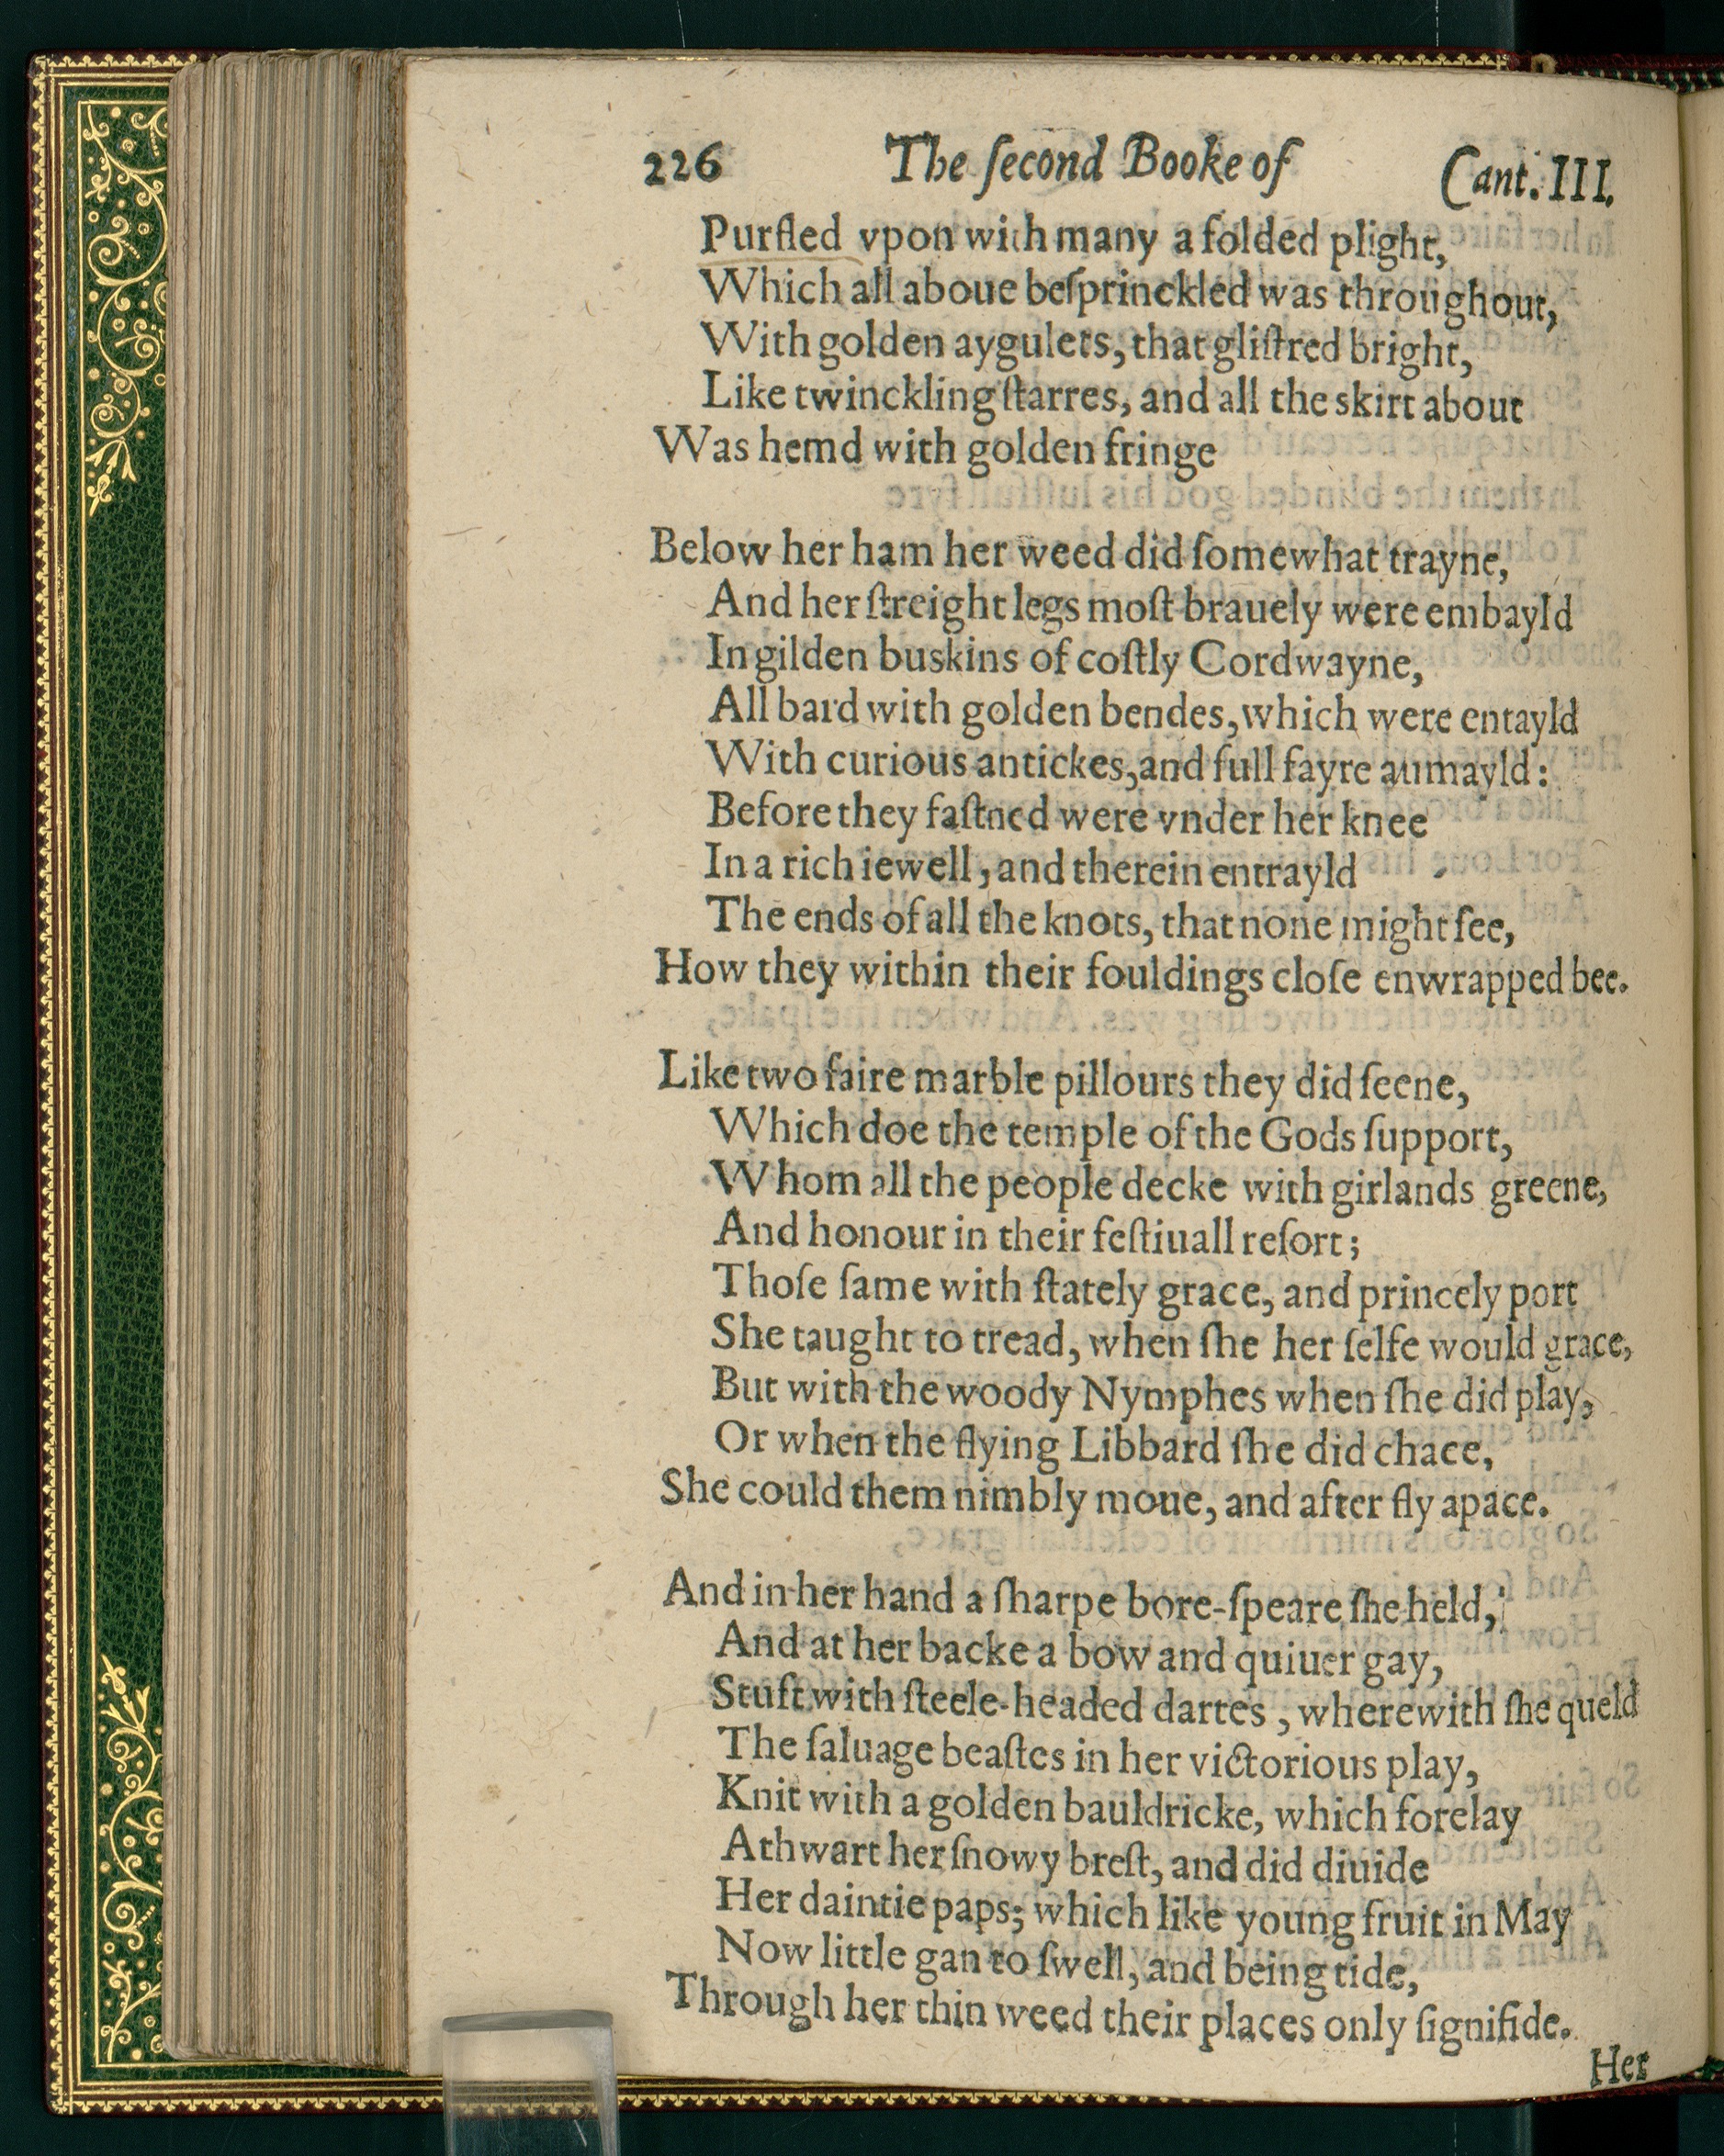 226 The ſecond Booke of Cant. III.
Purfled vpon with many a folded plight,
Which all aboue beſprinckled was throughout,
With golden aygulets, that gliſtred bright,
Like twinckling ſtarres, and all the skirt about
Was hemd with golden fringe
Below her ham her weed did ſomewhat trayne,
And her ſtreight legs moſt brauely were embayld
In gilden buskins of coſtly Cordwayne,
All bard with golden bendes, which were entayld
With curious antickes, and full fayre aumayld:
Before they faſtned were vnder her knee
In a rich iewell, and therein entrayld
The ends of all the knots, that none might ſee,
How they within their fouldings cloſe enwrapped bee.
Like two faire marble pillours they did ſeene,
Which doe the temple of the Gods ſupport,
Whom all the people decke with girlands greene,
And honour in their feſtiuall reſort;
Thoſe ſame with ſtately grace, and princely port
She taught to tread, when ſhe her ſelfe would grace,
But with the woody Nymphes when ſhe did play,
Or when the flying Libbard ſhe did chace,
She could them nimbly moue, and after fly apace.
And in her hand a ſharpe bore-ſpeare ſhe held,
And at her backe a bow and quiuer gay,
Stuft with ſteele-headed dartes, wherewith ſhe queld
The ſaluage beaſtes in her victorious play,
Knit with a golden bauldricke, which forelay
Athwart her ſnowy breſt, and did diuide
Her daintie paps; which like young fruit in May
Now little gan to ſwell, and being tide,
Through her thin weed their places only ſignifide.
Her